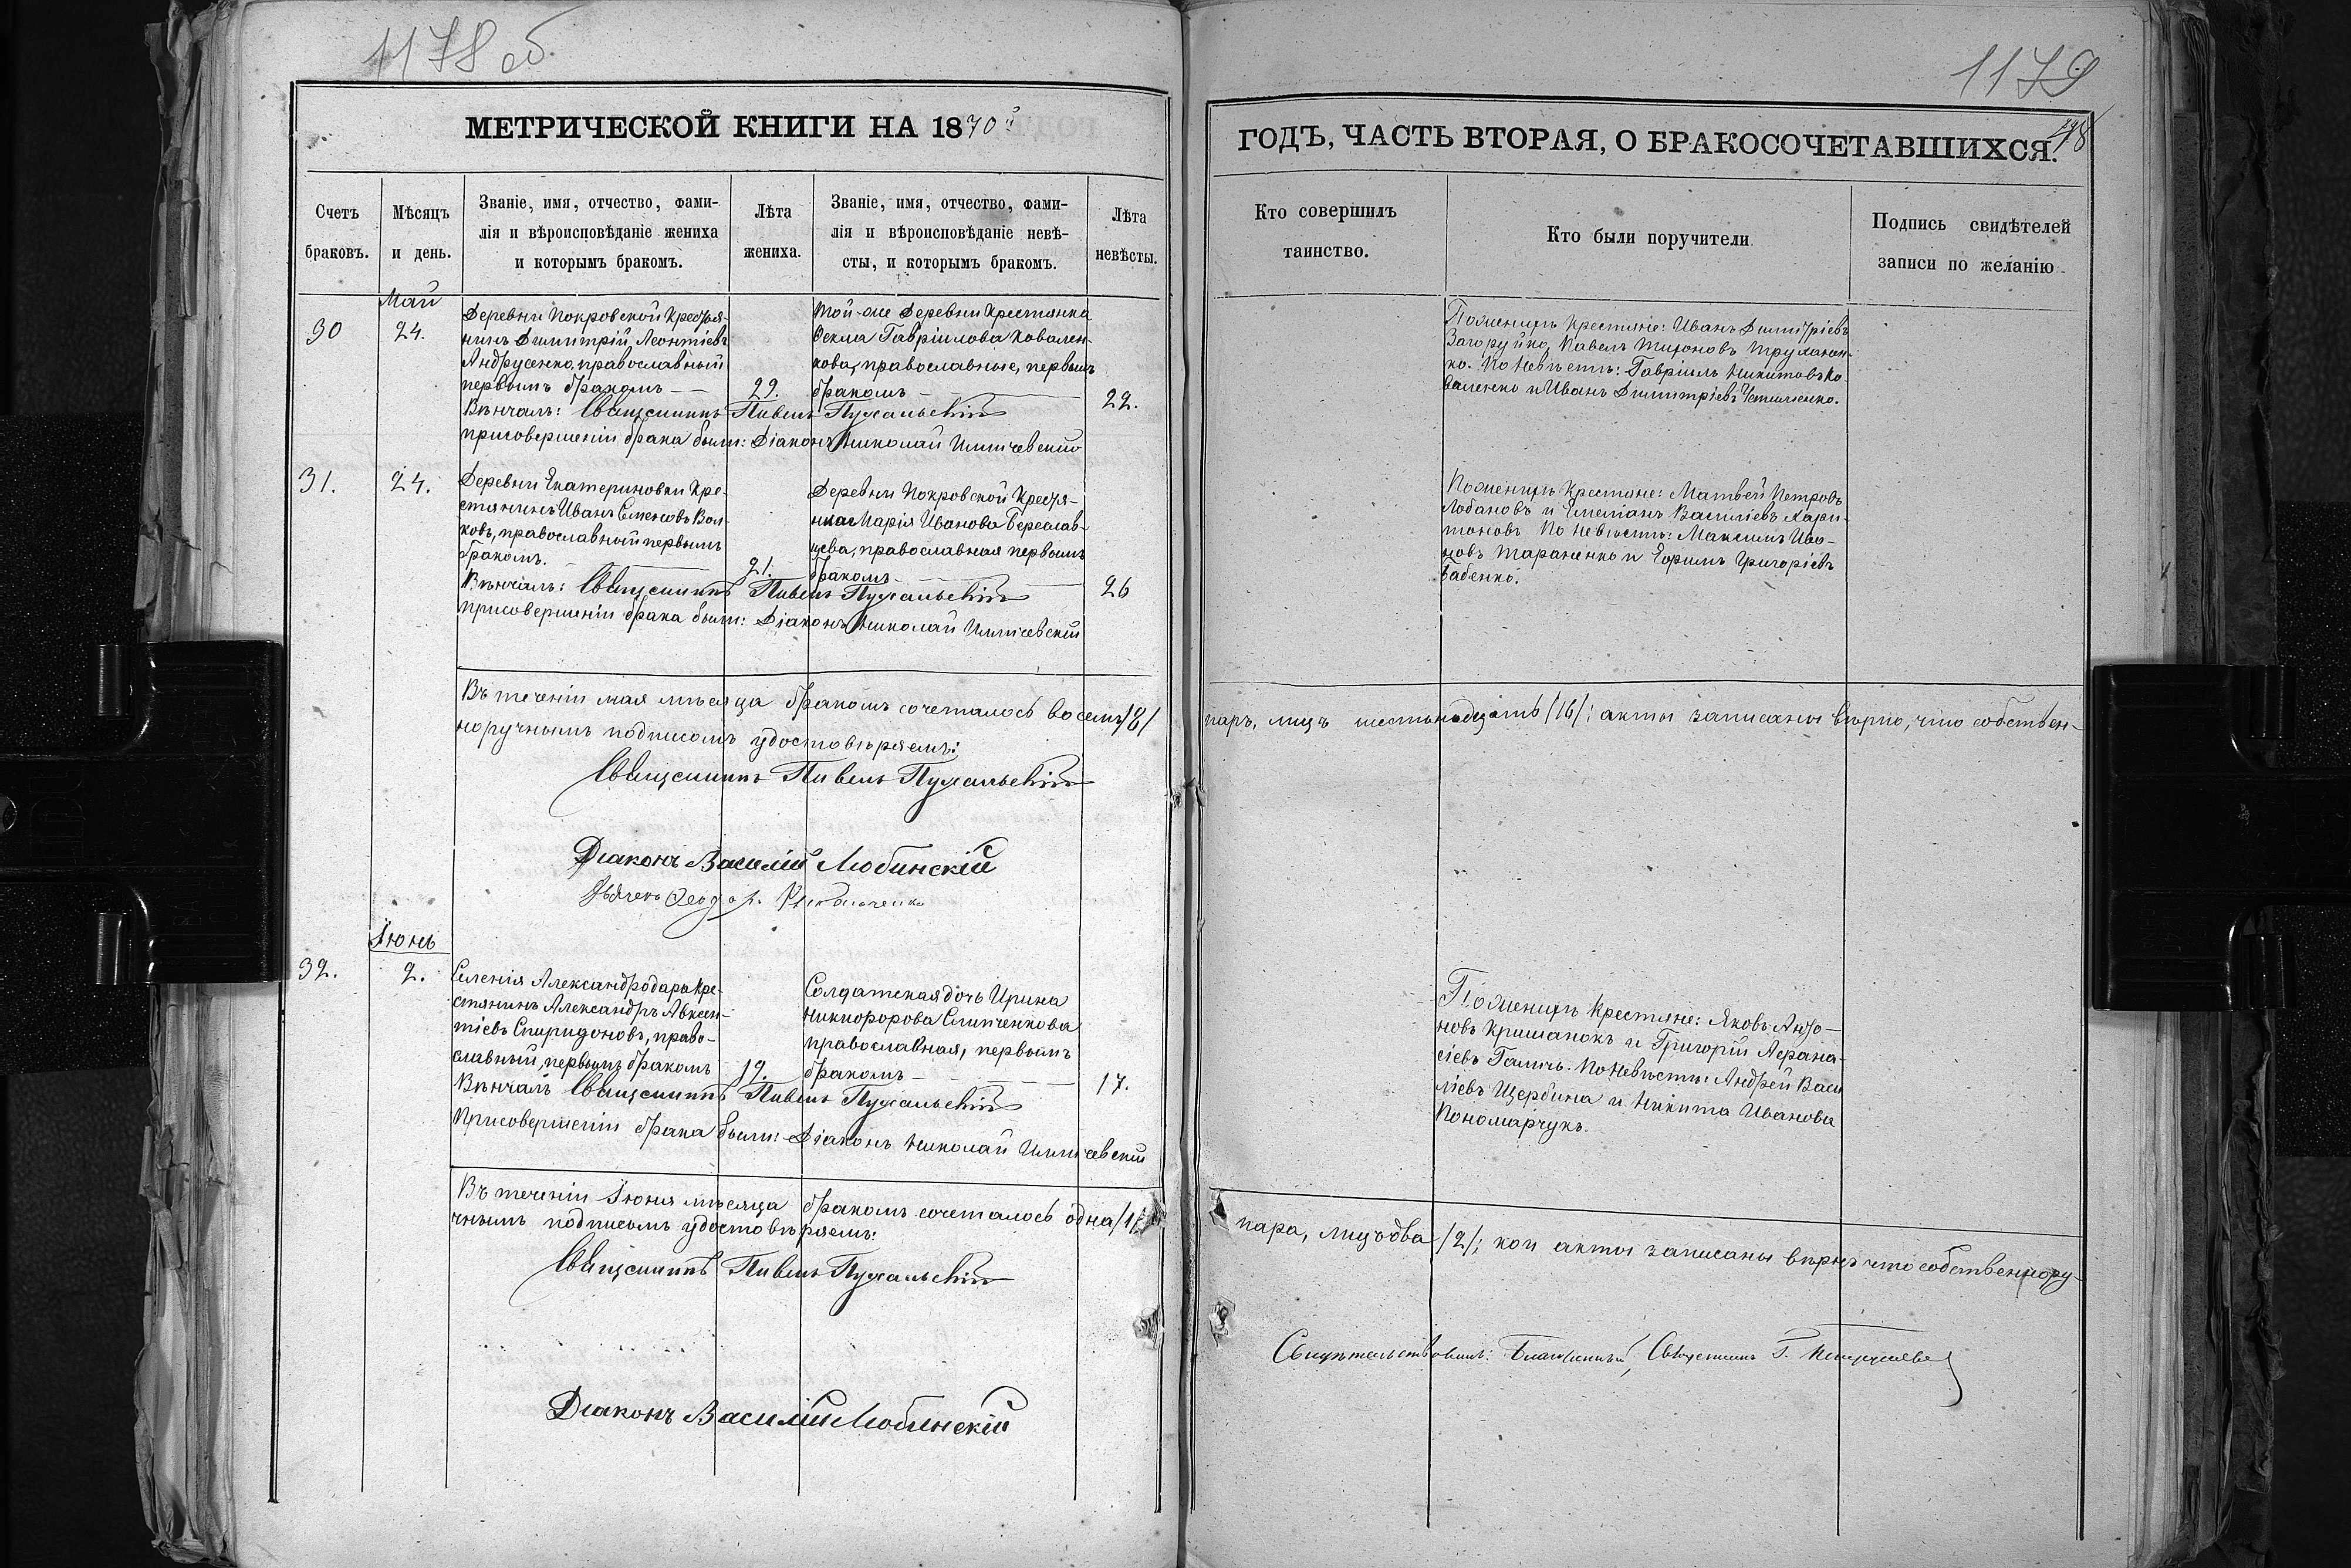 1178 об
МЕТРИЧЕСКОЙ КНИГИ НА 1870й
Счетъ браковъ.
Мѣсяцъ и день.
Званіе, имя, отчество, фами-
лія и вѣроисповѣданіе жениха
и которымъ бракомъ.
Лѣта жениха.
Званіе, имя, отчество, фами-
лія и вѣроисповѣданіе невѣ-
сты, и которымъ бракомъ.
Лѣта невѣсты.
Май
30
24.
Деревни Покровской Крестья-
нинъ Димитрій Леонтіевъ
Андрусенко, православный
первымъ бракомъ
22.
Той-же Деревни Крестянка
Фекла Гавріилова Ковален-
кова, православные, первымъ
бракомъ
22.
Вѣнчалъ: Священникъ Павелъ Пухальскій
При совершеніи брака были: Діаконъ Николай Иличевскій
31.
24.
Деревни Екатериновки Кре-
стянинъ Иванъ Семеновъ Вол-
ковъ, православный первымъ
бракомъ.
21.
Деревни Покровской Крестья-
нка Марія Иванова Береслав-
цева, православная первымъ
бракомъ
26
Вѣнчалъ: Священникъ Павелъ Пухальскій
При совершеніи брака были: Діаконъ Николай Иличевскій
Въ теченіи мая мѣсяца бракомъ сочеталось восемь /8/
норучнымъ подписомъ удостовѣряемъ:
Священникъ Павелъ Пухальскій
Діаконъ Василій Любинскій
Дьячекъ Феодоръ
Іюнь
32.
2.
Селенія Александродара Кре-
стянинъ Александръ Авксен-
тіевъ Спиридоновъ, право-
славный, первымъ бракомъ
19.
Солдатская дочь Ирина
Никифорова Слипченкова
православная, первымъ
бракомъ
17.
Вѣнчалъ Священникъ Павелъ Пухальскій
При совершеніи брака были: Діаконъ Николай Иличевскій
Въ теченіи Іюня мѣсяца бракомъ сочеталось одна /1/
чнымъ подписомъ удостовѣряемъ:
Священникъ Павелъ Пухальскій
Діаконъ Василій Любинскій
1179
ГОДЪ, ЧАСТЬ ВТОРАЯ, О БРАКОСОЧЕТАВШИХСЯ.
Кто совершилъ
таинство.
Кто были поручители
Подпись свидѣтелей
записи по желанію
По женихѣ Крестяніе: Иванъ Димитріевъ
Загоруйко, Павелъ Тихоновъ Труханен-
ко. По невѣстѣ: Гавріилъ Никитовъ Ко-
валенко и Иванъ Димитріевъ
По женихѣ Крестяне: Матвей Петровъ
Лобановъ и Емеліанъ Василіевъ Хари-
тоновъ По невѣстѣ: Максимъ Ива-
новъ Тараненко и Ефимъ Григоріевъ
Бабенко.
паръ, лицъ шестьнадцать /16/; акты записаны вѣрно, что собствен-
По женихѣ Крестяне: Яковъ Анто-
новъ Кришапокъ и Григорій Афана-
сіевъ Галичь. По Невѣстѣ: Андрей Васи
ліевъ Щербина и Никита Иванова
Пономарчукъ.
пара, лицъ два /2/; кои акты записаны вѣрно что собственнору-
Свидѣтельствовалъ: Благочинный, Священникъ Г.